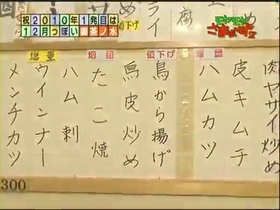 祝2010年1発目は
12月っぽい
御茶ノ水
モヤモヤ
さまぁ〜ず2
ライ
腐
下げ
肉ヤサイ
皮キムチ
ハムカツ
値下げ
鳥から揚げ
鳥皮炒め
たこ焼
ハム刺
増量
ウインナー
メンチカツ
300